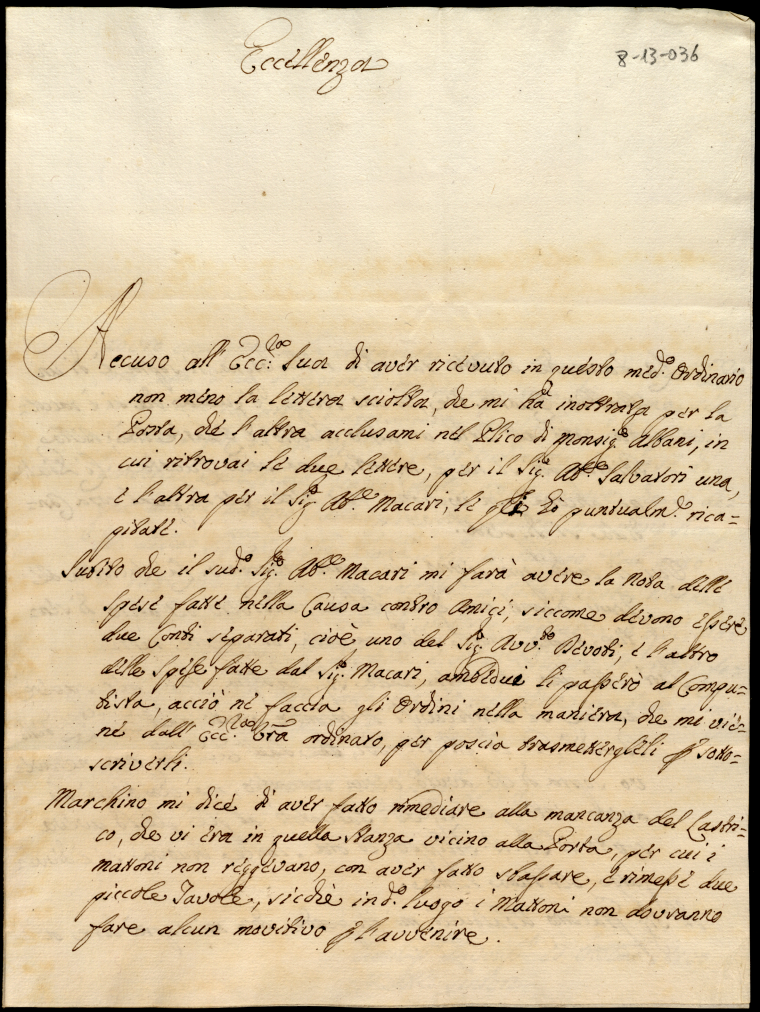 Eccellenza
8-13-036
Accuso all' Ecc:za Sua di aver ricevuto in questo med:o Ordinario
non meno la lettera sciolta, che mi ha inoltrata per la
Posta, che l'altra acclusami nel Plico di Monsig:r Albani, in
cui ritrovai le due lettere, per il Sig:r Ab:e Salvatori una,
e l'altra per il Sig:r Ab:e Macari, le gli hò puntualm:e reca=
pitate.
Subito che il sud:o Sig:r Ab:e Macari mi farà avere la Nota delle
spese fatte nella Causa contro Amici, siccome devono essere
due Conti separati, cioè uno del Sig:r Avv:to Devoti, e l'altro
delle spese fatte dal Sig:r Macari, ambidui li passerò al Compu=
tista, acciò ne faccia gli Ordini nella maniera, che mi vie=
ne dall' Ecc:za Vra ordinato, per poscia trasmetterglieli p sotto=
scriverli.
Marchino mi dice di aver fatto rimediare alla mancanza del Lastri=
co, che vi era in quella stanza vicino alla Porta, per cui i
mattoni non reggevano, con aver fatto sbassare, e rimesse due
piccole Tavole, sicchè in d:o luogo i Mattoni non dovranno
fare alcun movitivo p l'avvenire.